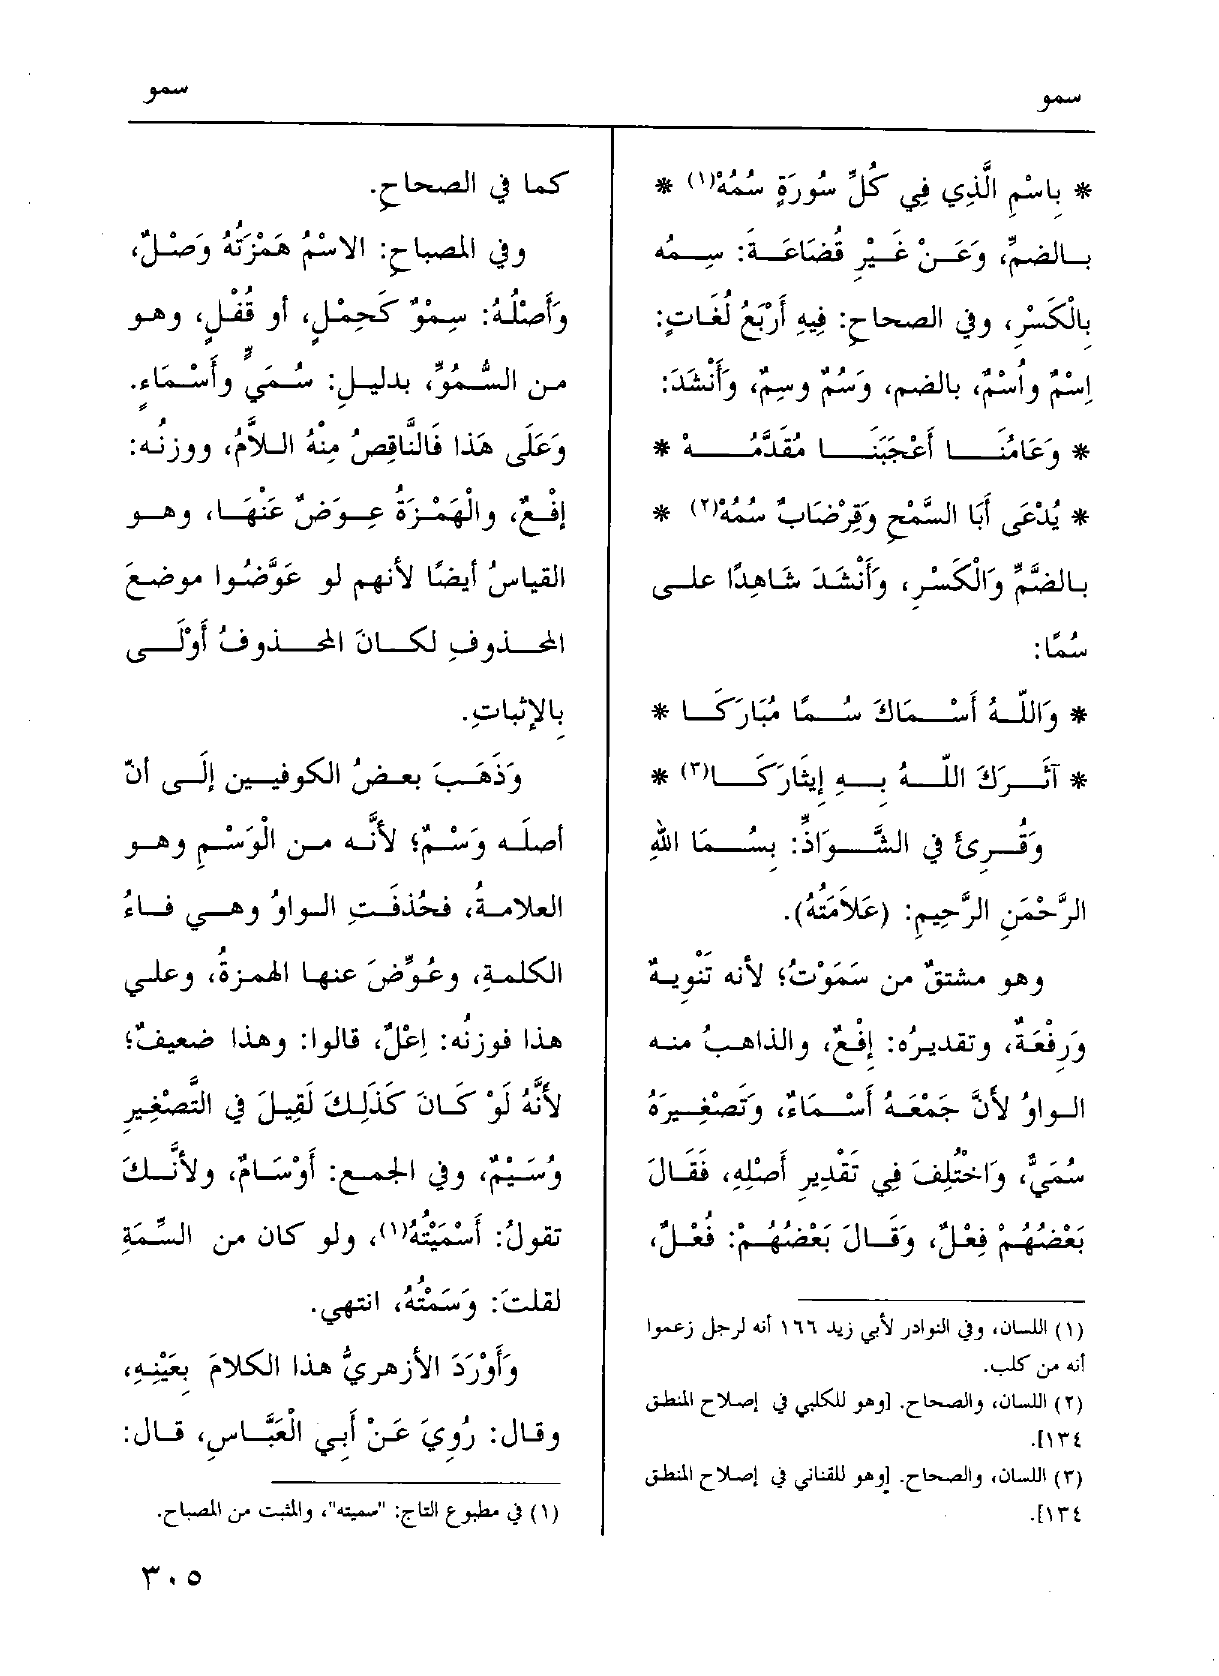 سمو
سمو
* بِاسْمِ الَّذِي فِي كُلِّ سُورَةٍ سُمُهْ(١) *
بالضمِّ، وَعَنْ غَيْرِ قُضَاعَةَ: سِمُه
بِالْكَسْرِ، وفي الصحاح: فِيهِ أَرْبَعُ لُغَاتٍ:
اِسْمٌ واُسْمٌ، بالضم، وَسُمٌ وسِمٌ، وَأَنْشَدَ:
* وَعَامُنَا أَعْجَبَنَا مُقَدَّمُهْ *
* يُدْعَى أَبَا السَّمْحِ وَقِرْضَابٌ سُمُهْ(٢) *
بالضَّمِّ وَالْكَسْرِ، وَأَنْشَدَ شَاهِدًا على
سُمًا:
* وَاللّهُ أَسْمَاكَ سُمًا مُبَارَكَا *
* آثَرَكَ اللّهُ بِهِ إِيثَارَكَا(٣) *
وَقُرِئَ في الشَّوَاذِّ: بِسُمَا اللهِ
الرَّحْمَنِ الرَّحِيمِ: (عَلَامَتُهُ).
وهو مشتقٌ من سَمَوْتُ؛ لأنه تَنْوِيهٌ
وَرِفْعَةٌ، وتقديرُه: إِفْعٌ، والذاهبُ منه
الواوُ لأَنَّ جَمْعَهُ أَسْمَاءٌ، وَتَصْغِيرَهُ
سُمَيٌّ، وَاخْتُلِفَ فِي تَقْدِيرِ أَصْلِهِ، فَقَالَ
بَعْضُهُمْ فِعْلٌ، وَقَالَ بَعْضُهُمْ: فُعْلٌ،
(١) اللسان، وفي النوادر لأبي زيد ١٦٦ أنه لرجل زعموا
أنه من كلب.
(٢) اللسان، والصحاح. [وهو للكلبي في إصلاح المنطق
١٣٤].
(٣) اللسان، والصحاح. [وهو للقناني في إصلاح المنطق
١٣٤].
كما في الصحاحِ.
وفي المصباحِ: الاسْمُ هَمْزَتُهُ وَصْلٌ،
وَأَصْلُهُ: سِمْوٌ كَحِمْلٍ، أو قُفْلٍ، وهو
من السُّمُوِّ، بدليلِ: سُمَيٍّ وأَسْمَاءٍ.
وَعَلَى هَذا فَالنَّاقِصُ مِنْهُ اللاَّمُ، ووزنُه:
إِفْعٌ، والْهَمْزَةُ عِوَضٌ عَنْهَا، وهو
القياسُ أيضًا لأنهم لو عَوَّضُوا موضعَ
المحذوفِ لكانَ المحذوفُ أَوْلَى
بالإثباتِ.
وَذَهَبَ بعضُ الكوفيين إلَى أنّ
أصلَه وَسْمٌ؛ لأنَّه من الْوَسْمِ وهو
العلامةُ، فحُذفَتِ الواوُ وهي فاءُ
الكلمةِ، وعُوِّضَ عنها الهمزةُ، وعلي
هذا فوزنُه: اِعْلٌ، قالوا: وهذا ضعيفٌ؛
لأَنَّهُ لَوْ كَانَ كَذَلِكَ لَقِيلَ في التَّصْغِيرِ
وُسَيْمٌ، وفي الجمعِ: أَوْسَامٌ، ولأَنَّكَ
تقولُ: أَسْمَيْتُهُ(١)، ولو كان من السِّمَةِ
لقلتَ: وَسَمْتُهُ، انتهي.
وَأَوْرَدَ الأزهريُّ هذا الكلامَ بِعَيْنِهِ،
وقال: رُوِيَ عَنْ أَبِي الْعَبَّاسِ، قال:
(١) في مطبوع التاج: "سميته"، والمثبت من المصباح.
٣٠٥